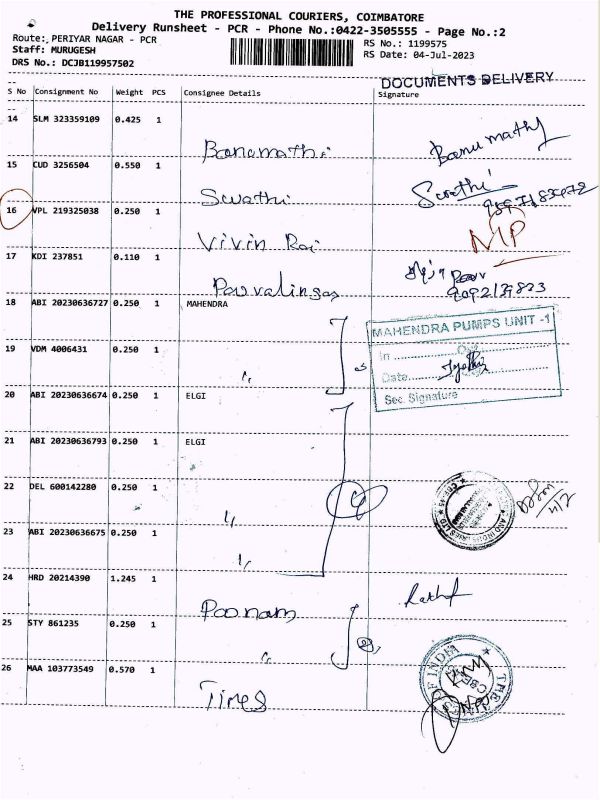 THE PROFESSIONAL COURIERS, COIMBATORE
Delivery Runsheet - PCR - Phone No.:0422-3505555 - Page No.:2
Route: PERIYAR NAGAR - PCR RS No.: 1199575
Staff: MURUGESH RS Date: 04-Jul-2023
DRS No.: DCJB119957502
DOCUMENTS DELIVERY
S No Consignment No Weight PCS Consignee Details Signature
14 SLM 323359109 0.425 1
Banumathi Banumathy
15 CUD 3256504 0.550 1
Swathi Swathi
16 VPL 219325038 0.250 1
Vivin Raj
17 KDI 237851 0.110 1
18 ABI 20230636727 0.250 1 MAHENDRA
MAHENDRA PUMPS UNIT -1
In
19 VDM 4006431 0.250 1
Date
Sec. Signature
20 ABI 20230636674 0.250 1 ELGI
21 ABI 20230636793 0.250 1 ELGI
22 DEL 600142280 0.250 1
23 ABI 20230636675 0.250 1
24 HRD 20214390 1.245 1
Poonam
25 STY 861235 0.250 1
26 MAA 103773549 0.570 1
Times